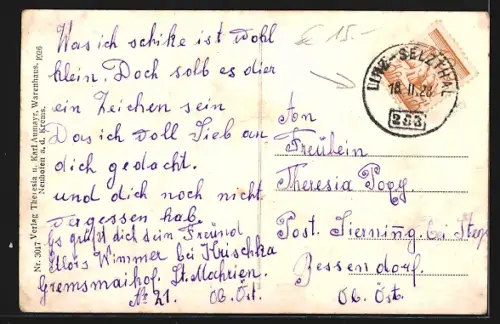 Was ich schike ist wohl
klein. Doch solb es dier
ein Zeichen sein
Das ich voll Lieb an
dich gedacht.
und dich noch nicht
vergessen hab.
Es grüßt dich dein Freünd
Alois Wimmer bei Krischka
Gremsmaihof. St. Mahrien.
No 21. Ob. Öst.
15.-
LINZ-SELZTHAL
18.II.28
253
An
Freülein
Theresia Popy
Post Sierning bei Steyr
Bessendorf.
Ob. Öst.
Nr. 3017 Verlag Theresia u. Karl Aumayr, Warenhaus, 1926
Neuhofen a. d. Krems.